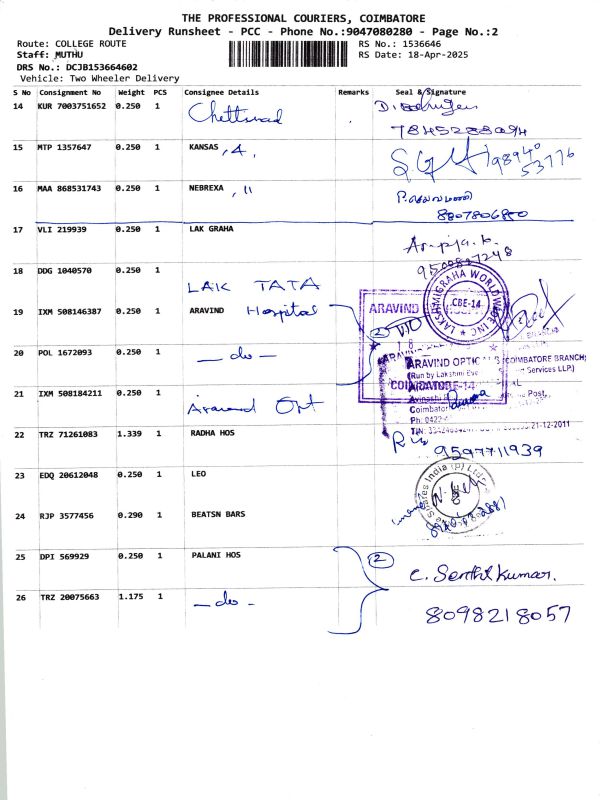 THE PROFESSIONAL COURIERS, COIMBATORE
Delivery Runsheet - PCC - Phone No.:9047080280 - Page No.:2
Route: COLLEGE ROUTE RS No.: 1536646
Staff: MUTHU RS Date: 18-Apr-2025
DRS No.: DCJB153664602
Vehicle: Two Wheeler Delivery
S No Consignment No Weight PCS Consignee Details Remarks Seal & Signature
14 KUR 7003751652 0.250 1 Chettinad
15 MTP 1357647 0.250 1 KANSAS , 4, 98940
53776
16 MAA 868531743 0.250 1 NEBREXA , 11
8807806800
17 VLI 219939 0.250 1 LAK GRAHA
9500887248
18 DDG 1040570 0.250 1 LAK TATA
LAKSHMIGRAHA WORLDWIDE INC
CBE-14
19 IXM 508146387 0.250 1 ARAVIND Hospital
ARAVIND
20 POL 1672093 0.250 1 — do — 2
ARAVIND OPTIC (COIMBATORE BRANCH)
(Run by Lakshmi Services LLP)
21 IXM 508184211 0.250 1 Aravind Opt
COIMBATORE-14
Post,
Coimbator
Ph: 0422-
21-12-2011
22 TRZ 71261083 1.339 1 RADHA HOS
9597711939
23 EDQ 20612048 0.250 1 LEO
India (P) Ltd
24 RJP 3577456 0.290 1 BEATSN BARS
25 DPI 569929 0.250 1 PALANI HOS 2
C. Senthil Kumar.
26 TRZ 20075663 1.175 1 — do — 8098218057